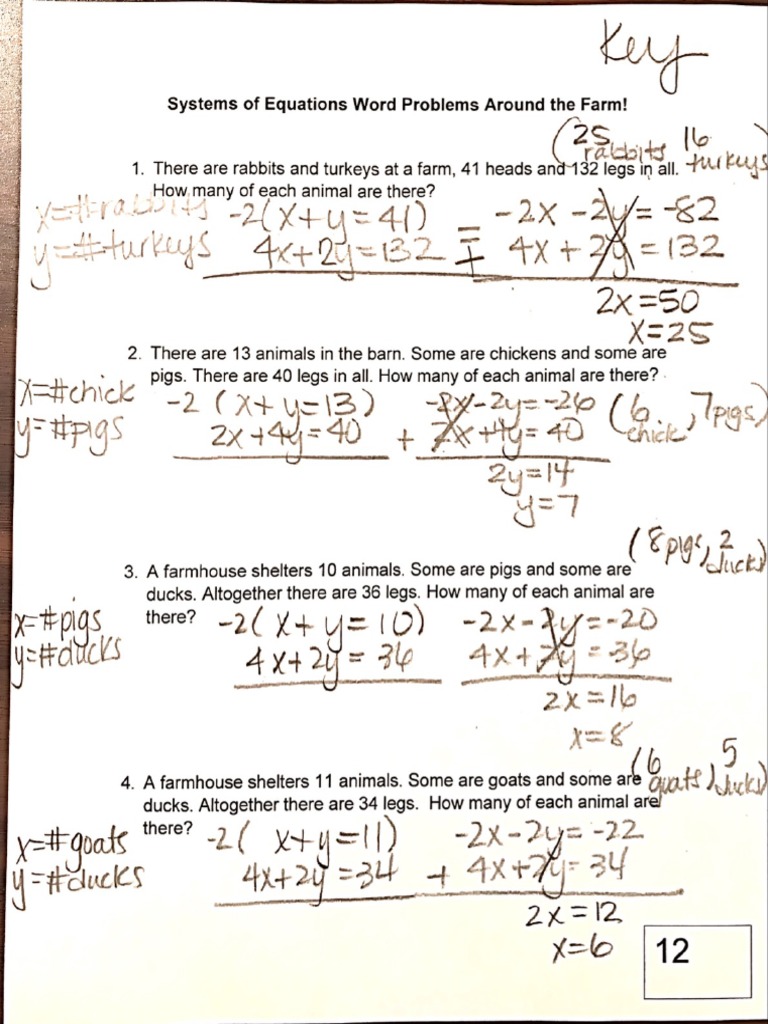 Key
Systems of Equations Word Problems Around the Farm!
(25 rabbits 16 turkeys)
1. There are rabbits and turkeys at a farm, 41 heads and 132 legs in all.
How many of each animal are there?
x=#rabbits
y=#turkeys
-2(x+y=41)
4x+2y=132
-2x-2y=-82
+ 4x+2y=132
2x=50
x=25
2. There are 13 animals in the barn. Some are chickens and some are
pigs. There are 40 legs in all. How many of each animal are there?
x=#chick
y=#pigs
-2(x+y=13)
2x+4y=40
-2x-2y=-26
+ 2x+4y=40
2y=14
y=7
(6 chick, 7pigs)
(8 pigs, 2 ducks)
3. A farmhouse shelters 10 animals. Some are pigs and some are
ducks. Altogether there are 36 legs. How many of each animal are
there?
x=#pigs
y=#ducks
-2(x+y=10)
4x+2y=36
-2x-2y=-20
4x+2y=36
2x=16
x=8
(6 goats, 5 ducks)
4. A farmhouse shelters 11 animals. Some are goats and some are
ducks. Altogether there are 34 legs. How many of each animal are
there?
x=#goats
y=#ducks
-2(x+y=11)
4x+2y=34
-2x-2y=-22
+ 4x+2y=34
2x=12
x=6
12